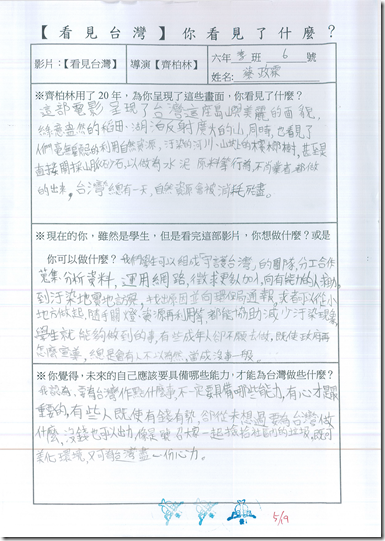 【看見台灣】你看見了什麼？
影片：【看見台灣】 導演【齊柏林】 六年 班 6 號
姓名：蔡政霖
※齊柏林用了20年，為你呈現了這些畫面，你看見了什麼？
這部電影呈現了台灣這座島嶼美麗的面貌，
綠意盎然的稻田、湖泊反射廣大的山，同時，也看見了
人們毫無節制的利用自然資源，污染的河川、山坡上的檳榔樹，甚至
直接開採山脈砂石，以做為水泥原料等行為，不肖業者都做
的出來，台灣總有一天，自然資源會被消耗殆盡。
※現在的你，雖然是學生，但是看完這部影片，你想做什麼？或是
你可以做什麼？我們學生可以組成「守護台灣」的團隊，分工合作
蒐集、分析資料，運用網路，徵求更多人加入，向有能力的人求助，
到污染地實地訪察，找出原因並向環保局通報，或者可以從小
地方做起，隨手關燈、資源再利用等，都能協助減少汙染現象，
學生就能夠做到的事，有些成年人卻不願去做，既使政府再
怎麼宣導，總是會有人不以為然，當成沒事一般。
※你覺得，未來的自己應該要具備哪些能力，才能為台灣做些什麼？
我認為，要為台灣作點什麼事，不一定要具備哪些能力，有心才是最
重要的，有些人既使有錢有勢，卻從未想過要為台灣做
什麼，沒錢也可以出力，像是號召大家一起撿拾社區的垃圾，既可
美化環境，又可為台灣盡一份心力。
5/19